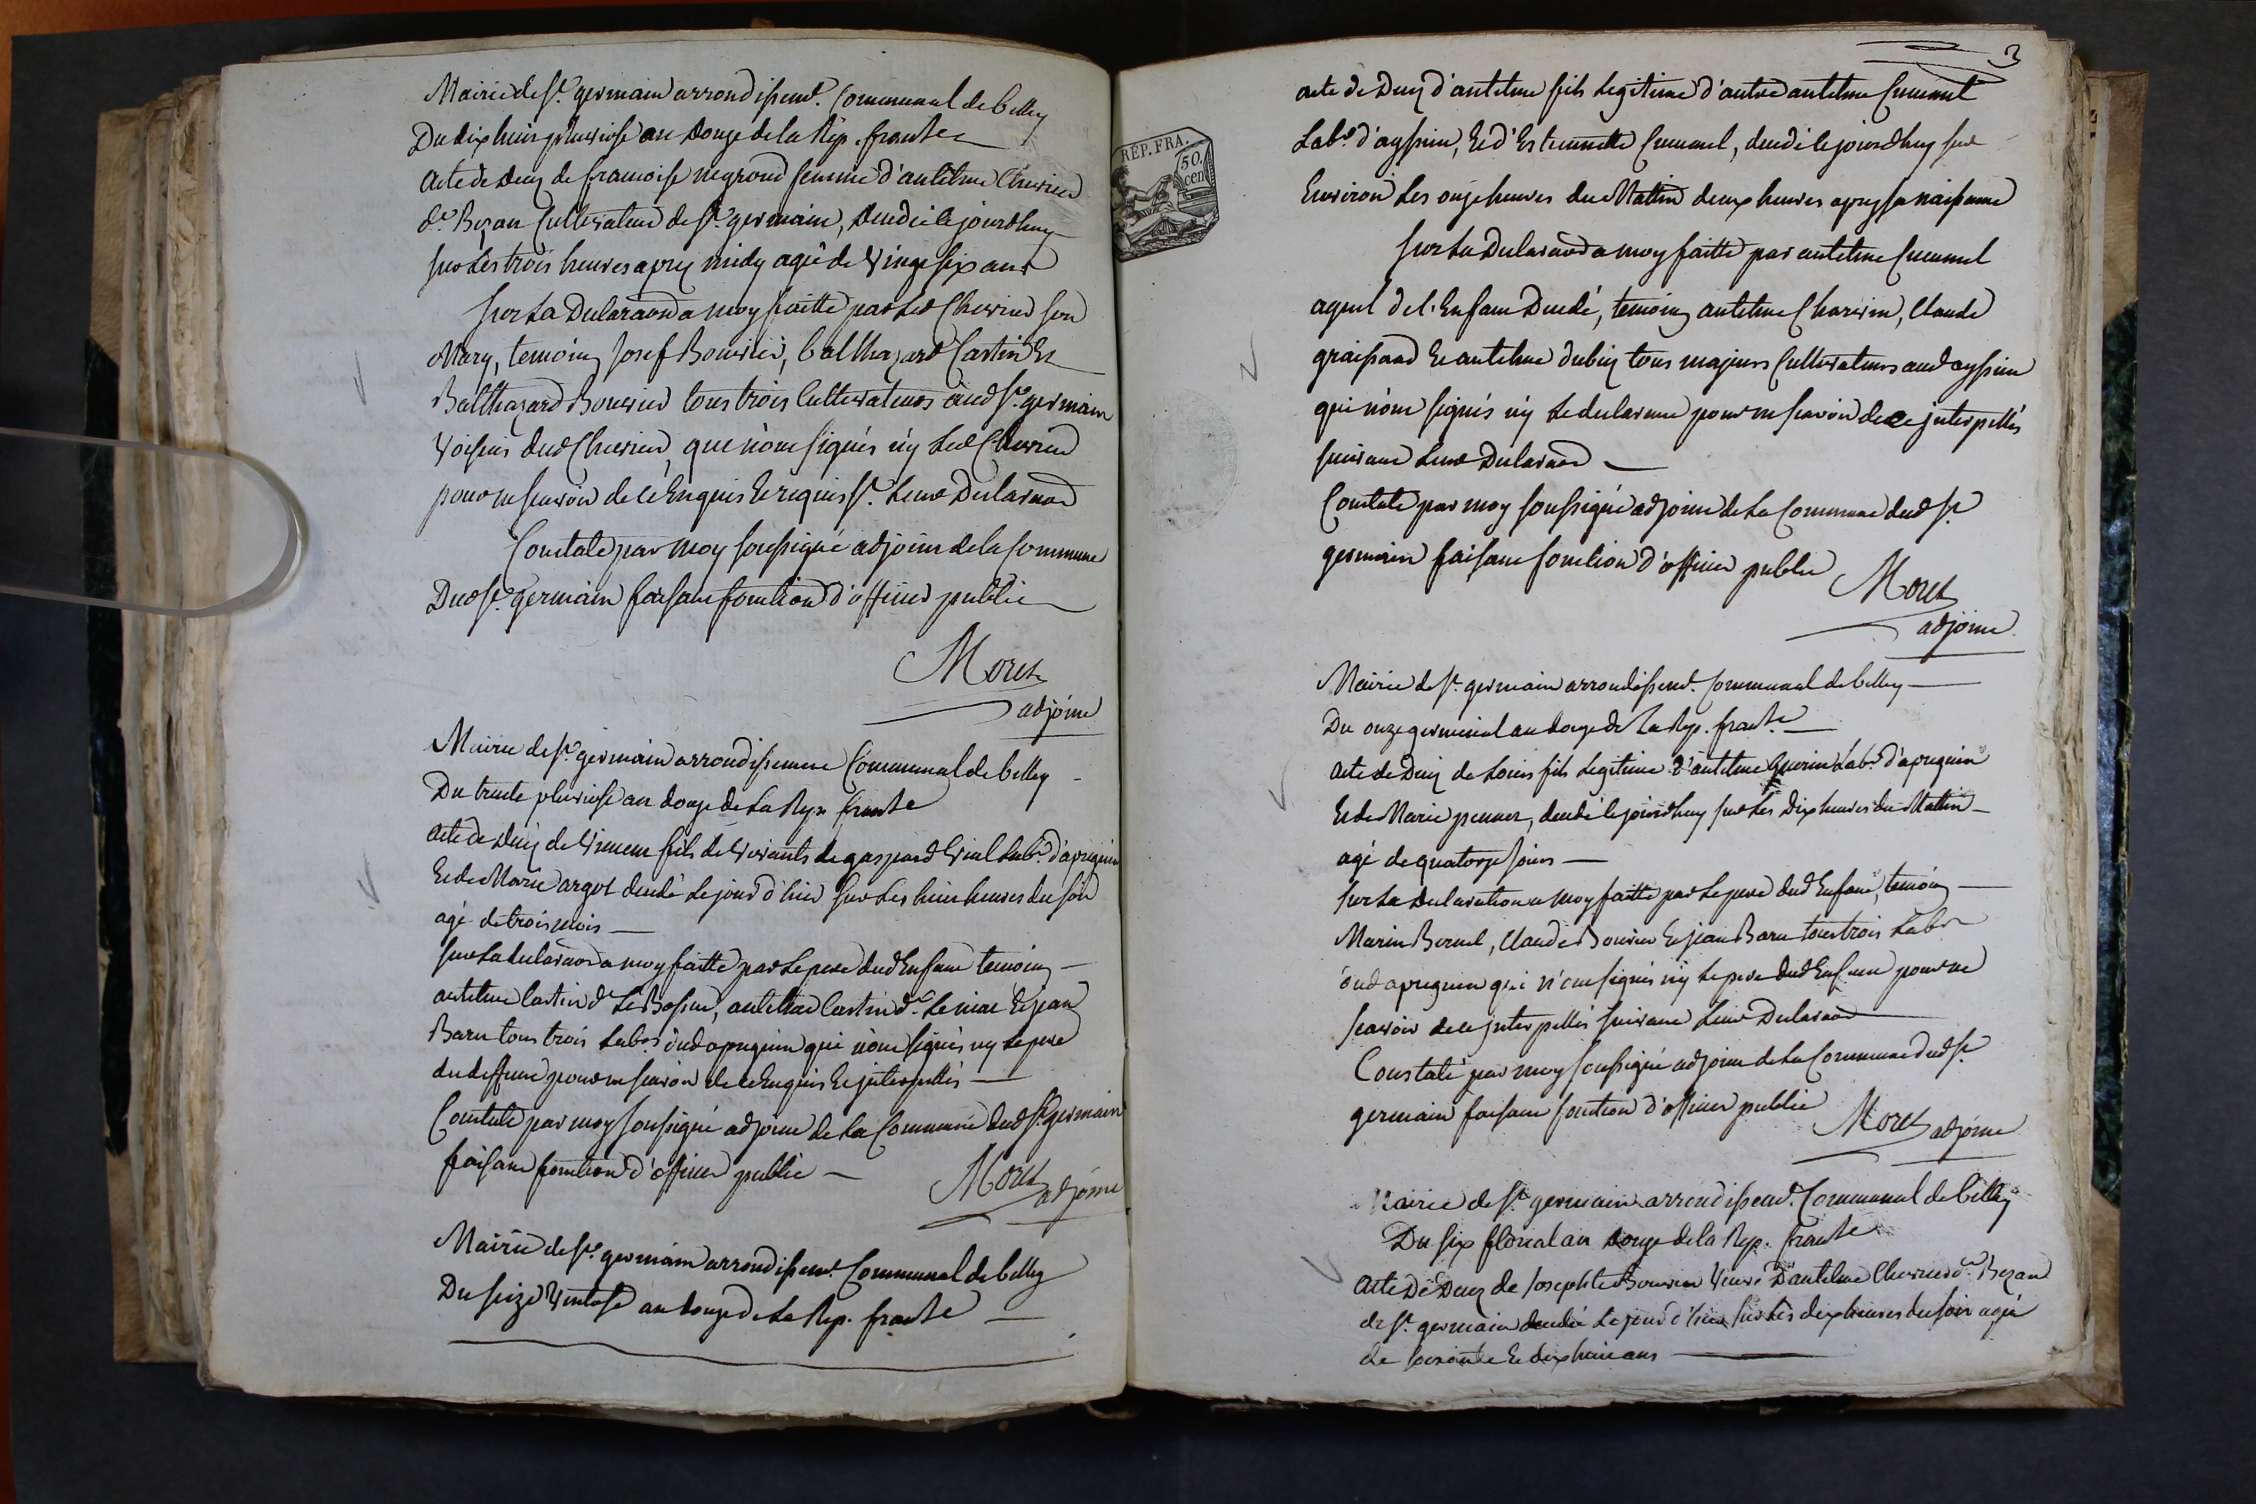 Mairie de St. germain arrondissemt. Communal de belley
Du dix huit pluviose an douze de la Rép. franse
Acte de decez de francoise negroud femme d'antelme Chevrier
dt. Bezan Cultivateur de St. germain, decedé cejourdhuy
sur Les trois heures aprez midy agée de Vingt six ans
Sur La Declaraon a moy faitte par Led Chevrier son
Mary, temoins Josef Bouvier, balthazard Castin Et
Balthazard Bouvier tous trois Cultivateurs aud St. germain
Voisins dud Chevrier, que n'ont signés n'y Led Chevrier
pour ne scavoir de ce Enquis Et requis St. Leur Declaraon
Constaté par moy soussigné adjoint de la Commune
Dud St. germain faisant fonction d'officier public
Moret
adjoint
Mairie de St. germain arrondissement Communal de belley
Du trente pluviose an douze de La Rep. franse
acte de decez de Vincent fils de Vivants de gaspard Vial Labr. d'apregnin
Et de Marie argot decedé Le jour d'hier sur Les huit heures du soir
agé de trois mois
sur La declaraon a moy faitte par Le pere dud Enfant temoins
antelme Castin dt. Le Bossu, antelme Castin dt. Et jean
Baru tous trois Labrs. dud apregnin qui n'ont signés ny Le pere
du deffunt pour ne scavoir de ce Enquis Et jnterpellés
Constaté par moy soussigné adjoint de La Commune dud St. germain
faisant fonction d'officier public
Moret adjoint
Mairie de St. germain arrondissemt. Communal de belley
Du seize Ventose an douze de La Rép. franse
3
REP. FRA.
50 cen
acte de Decez d'antelme fils Legitime d'autre antelme Cucumel
Labr. d'ayssin, Et d'Estiennette Cucumel, decedé cejourdhuy sur
Environ Les onze heures du Mattin deux heures aprez sa naissance
Sur La Declaraon a moy faitte par antelme Cucumel
ayeul de l'Enfant Decedé, temoins antelme Charvin, Claude
graissard Et antelme dubiez tous majeurs Cultivateurs aud ayssin
qui n'ont signés n'y Le declarant pour ne scavoir de ce jnterpellés
suivant Leur Declaraon
Constaté par moy soussigné adjoint de La Commune dud St.
germain faisant fonction d'officier public
Moret
adjoint
Mairie de St. germain arrondissemt. Communal de belley
Du onze germinal an douze de La Rep. franse
acte de Decez de Louis fils Legitime d'antelme Labr. d'apregnin
Et de Marie decedé cejourdhuy sur Les Dix heures du Mattin
agé de quatorze Jours
Sur La declaration a moy faitte par Le pere dud Enfant, temoins
Marin Claude Bouvier Et jean Baru tous trois Labrs
dud apregnin qui n'ont signés n'y Le pere dud Enfant pour ne
scavoir de ce jnterpellés suivant Leur Declaraon
Constaté par moy soussigné adjoint de La Commune dud St.
germain faisant fonction d'officier public
Moret adjoint
Mairie de St. germain arrondissemt. Communal de belley
Du six floreal an douze de la Rép. franse
Acte De Decez de Josephte Bouvier Veuve D'antelme Chevrier dt. Bezan
de St. germain decedée Le jour d'hier sur Les dix heures du soir agée
de soixante Et dix huit ans